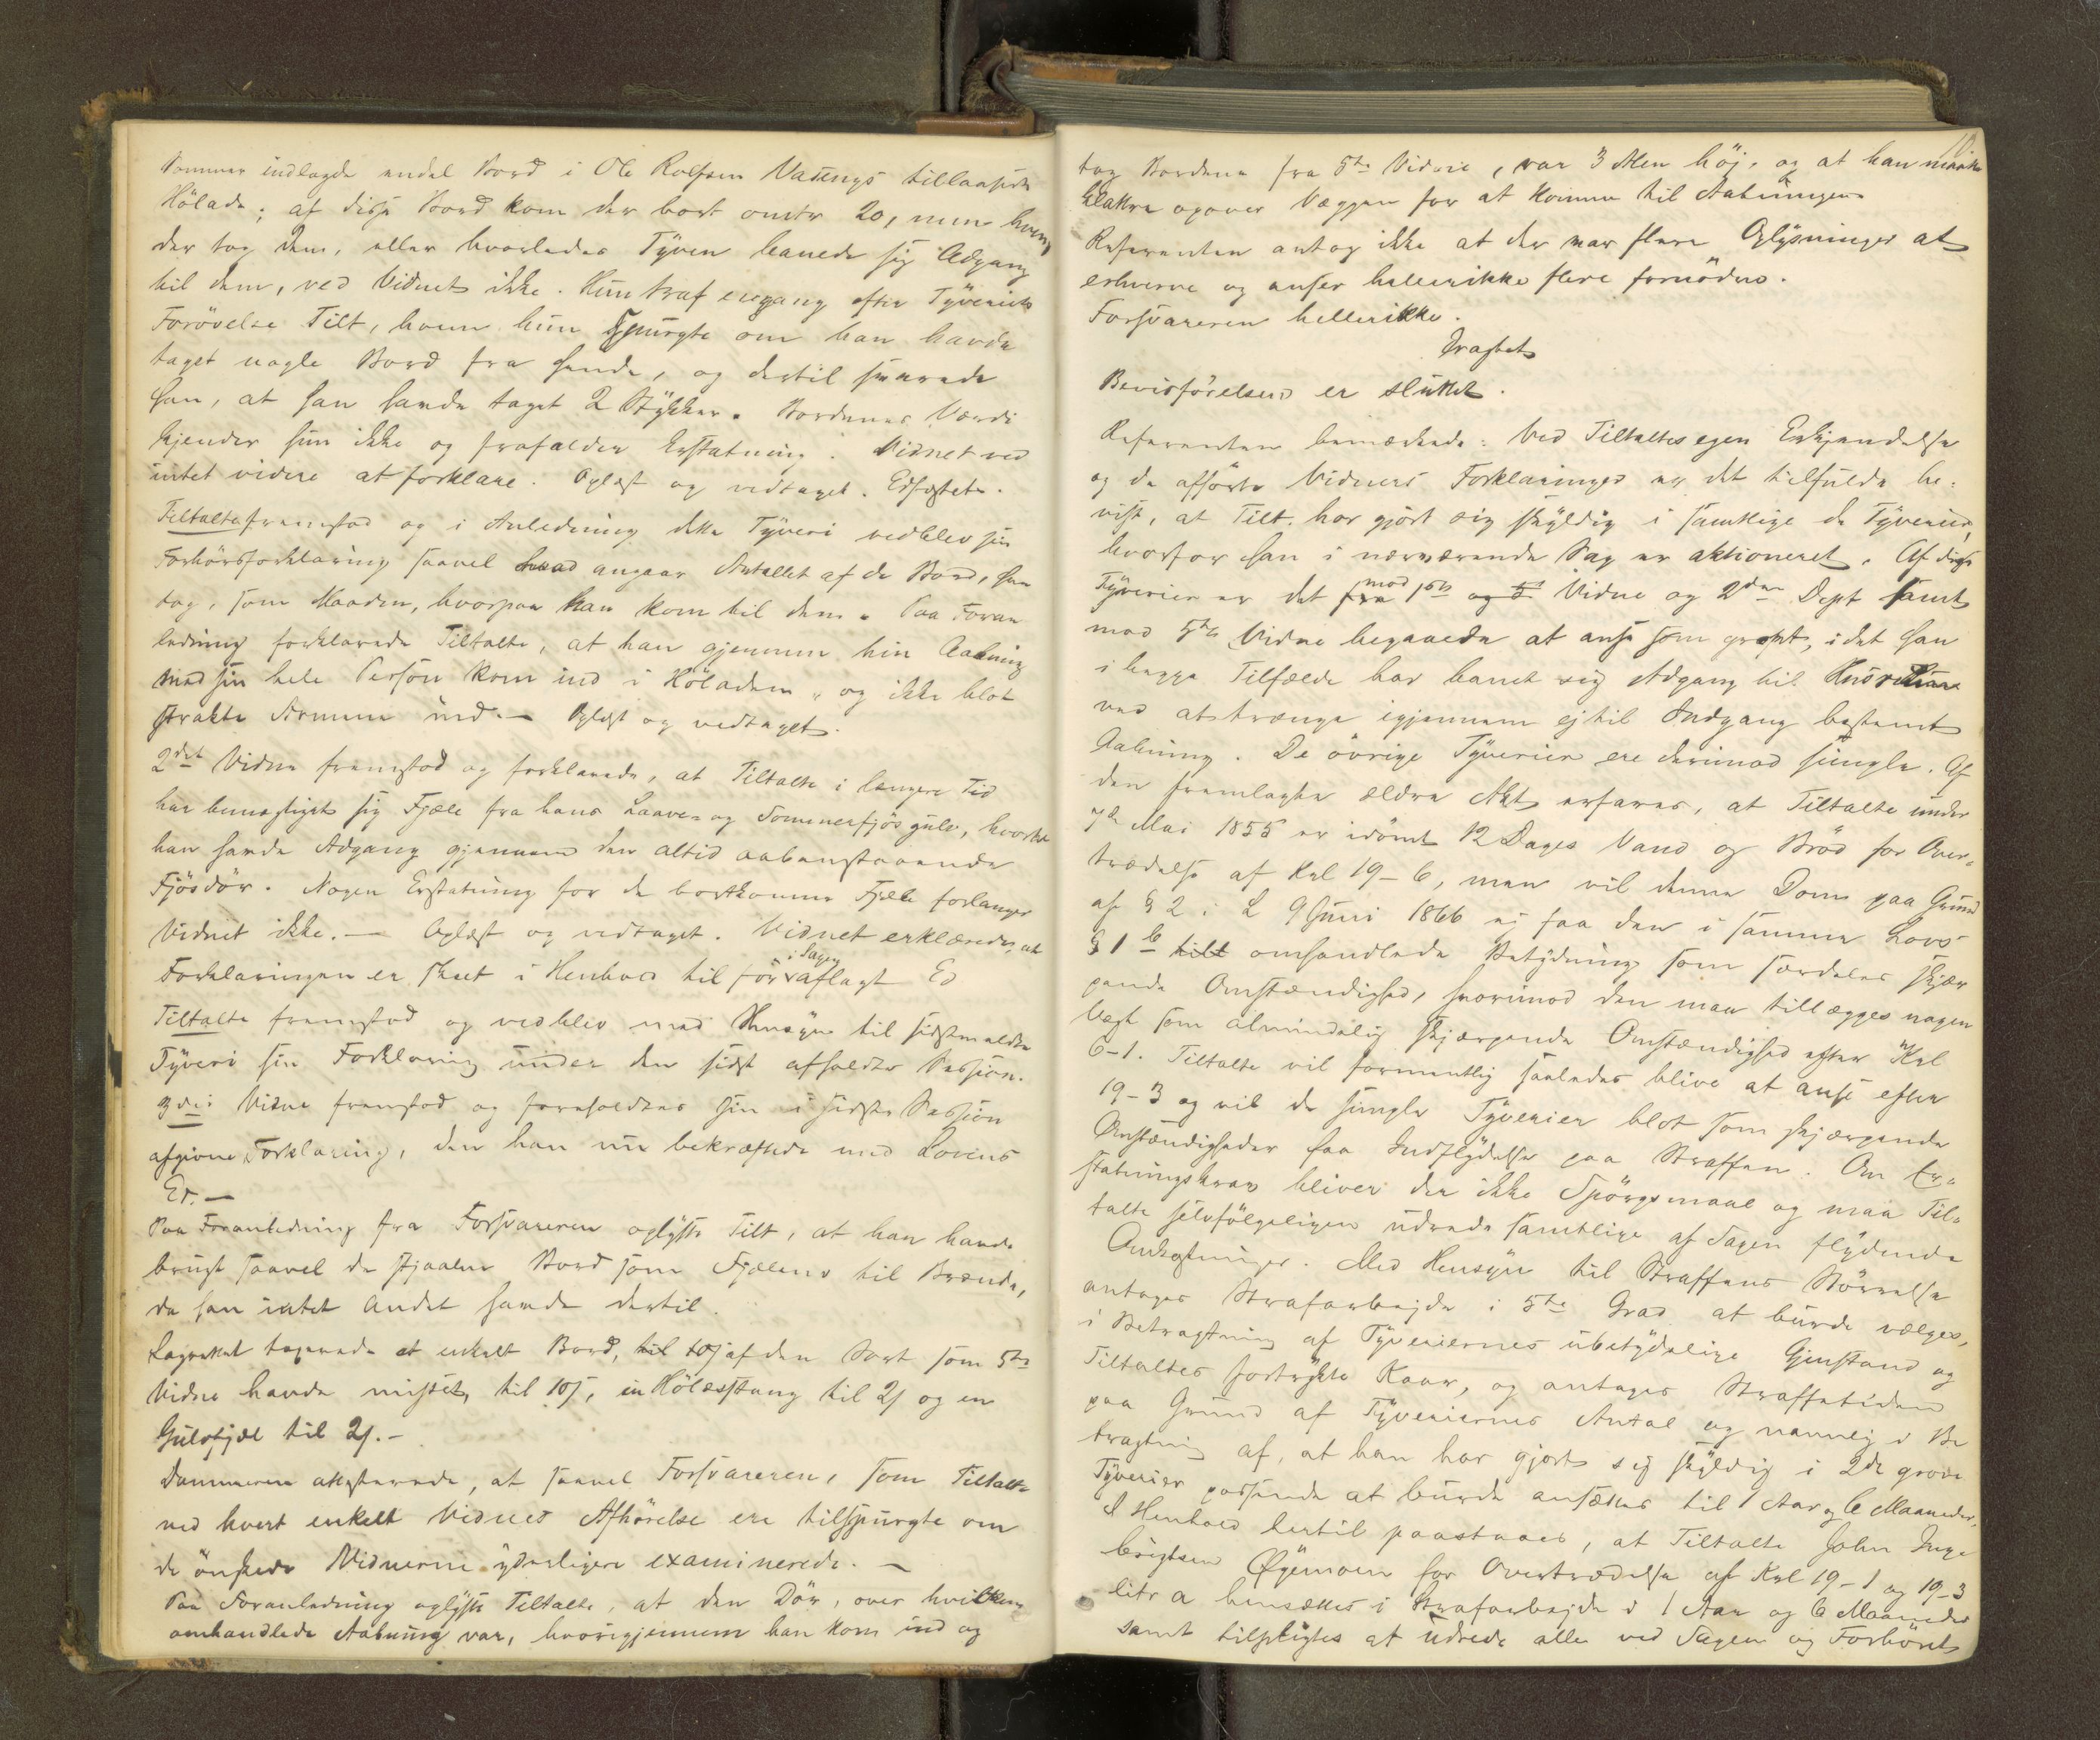 Sommer indlagde endel Bord i Ole Rolfsen Vattengs tillaaste
Hölade; af disse Bord kom der bort omtr 20, men hvem
der tog dem, eller hvorledes Tyven banede sig Adgang
til dem, ved Vidnet ikke. Hun traf engang efter Tyveriets
Forövelse Tilt, hvem hun spurgte om han havde
taget nogle Bord fra hende, og dertil svarede
han, at han havde taget 2 Stykker. Bordenes Værdi
kjender hun ikke og frafalder Erstatning. Vidnet ved
intet videre at forklare. Oplæst og vedtaget. Edfæstet.
Tiltalte fremstod og i Anledning dette Tyveri vedblev sin
Forhörsforklaring saavel hvad angaar Antallet af de Bord, han
tog, som Maaden, hvorpaa han kom til dem. Paa Foran
ledning forklarede Tiltalte, at han gjennem hin Aabning
med sin hele Person kom ind i Höladen og ikke blot
strakte Armene ind.— Oplæst og vedtaget.
2det Vidne fremstod og forklarede, at Tiltalte i længere Tid
har bemægtiget sig Fjæle fra hans Laave- og Sommerfjösgulv, hvortil
han havde Adgang gjennem den altid aabenstaaende
Fjösdör. Nogen Erstatning for de bortkomne Fjæle forlanger
Vidnet ikke.— Oplæst og vedtaget. Vidnet erklærede, at
Forklaringen er skeet i Henhold til för i Sagen aflagt Ed
Tiltalte fremstod og vedblev med Hensyn til sidstmeldte
Tyveri sin Forklaring under den sidst afholdte Session.
3die Vidne fremstod og foreholdtes sin i sidste Session
afgivne Forklaring, den han nu bekræftede med Lovens
Ed.—
Paa Foranledning fra Forsvareren oplyste Tilt, at han havde
brugt saavel de stjaalne Bord som Fjælene til Brænde,
da han intet andet havde dertil.
Lagrettet taxerede et enkelt Bord, af den Sort som 5te
Vidne havde mistet, til 10ß, en Hölæsstang til 2ß og en
Gulvfjæl til 2ß.—
Dommeren attesterede, at saavel Forsvareren, som Tiltalte
ved hvert enkelt Vidnes Afhörelse ere tilspurgte om
de önskede Vidnerne yderligere examinerede.—
Paa Foranledning oplyste Tiltalte, at den Dör, over hvilken
omhandlede Aabning var, hvorigjennem han kom ind og
tog Bordene fra 5te Vidne, var 3 Alen höj, og at han maatte
klattre opover Væggen for at komme til Aabningen
Referenten antog ikke at der var flere Oplysninger at
erhverve og anser hellerikke flere fornödne.
Forsvareren hellerikke.
Bevisförelsen er sluttet.
Referenten bemærkede: Ved Tiltaltes egen Erkjendelse
og de afförte Vidners Forklaringer er det tilfulde be-
vist, at Tilt. har gjort sig skyldig i samtlige de Tyverier,
hvorfor han i nærværende Sag er aktioneret. Af disse
Tyverier er det mod 1ste Vidne og 2den Dept samt
mod 5te Vidne begaaede at anse som grovt, idet han
i begge Tilfælde har banet sig Adgang til Husrum
ved at trænge igjennem ej til Indgang bestemt
Aabning. De övrige Tyverier ere derimod simple. Af
den fremlagte ældre Akt erfares, at Tiltalte under
7de Mai 1855 er idömt 12 Dages Vand og Bröd for Over-
trædelse af Krl 19-6, men vil denne Dom paa Grund
af § 2 i L 9 Juni 1866 ej faa den i samme Lovs
§ 1 b omhandlede Betydning som særdeles skjær
pende Omstændighed, hvorimod den maa tillægges nogen
Vægt som almindelig skjærpende Omstændighed efter Krl
6-1. Tiltalte vil formentlig saaledes blive at anse efter
19-3 og vil de simple Tyverier blot som skjærpende
Omstændigheder faa Indflydelse paa Straffen. Om Er-
statningskrav bliver der ikke Spörgsmaal og maa Til-
talte selvfölgeligen udrede samtlige af Sagen flydende
Omkostninger. Med Hensyn til Straffens Störrelse
antages Strafarbejde i 5te Grad at burde vælges,
i Betragtning af Tyveriernes ubetydelige Gjenstand og
Tiltaltes fortrykte Kaar, og antages Straffetiden
paa Grund af Tyveriernes Antal og navnlig i Be
tragtning af, at han har gjort sig skyldig i 2de grove
Tyverier passende at burde ansættes til 1 Aar og 6 Maaneder.
I Henhold hertil paastaaes, at Tiltalte John Inge
brigtsen Öyemoen for Overtrædelse af Krl 19-1 og 19-3
litr a hensættes i Strafarbejde i 1 Aar og 6 Maaneder
samt tilpligtes at udrede alle ved Sagen og Forhöret